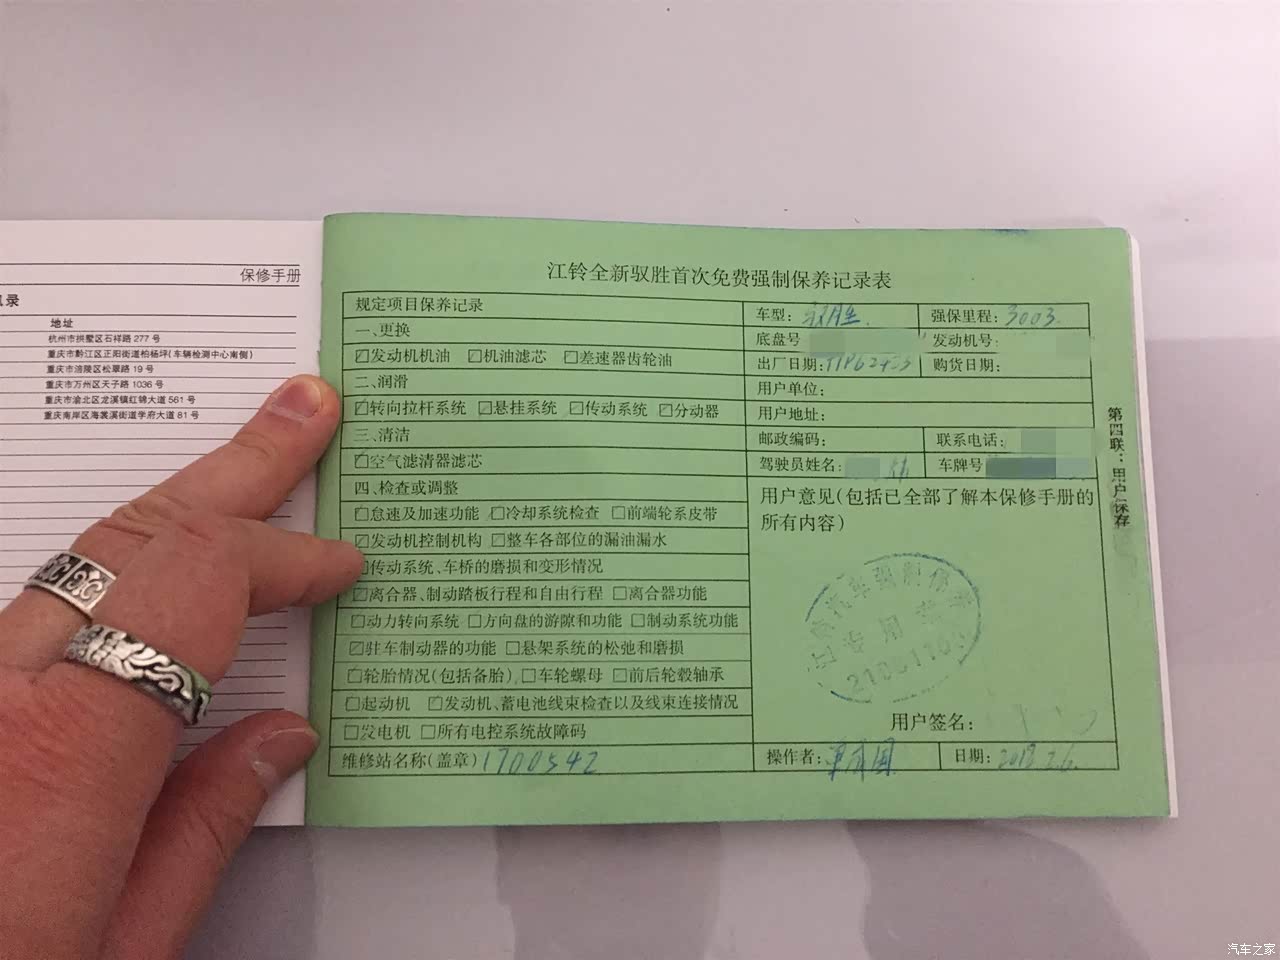 保修手册
录
地址
杭州市拱墅区石祥路 277 号
重庆市黔江区正阳街道柏杨坪(车辆检测中心南侧)
重庆市涪陵区松翠路 19 号
重庆市万州区天子路 1036 号
重庆市渝北区龙溪镇红锦大道 561 号
重庆南岸区海棠溪街道学府大道 81 号
江铃全新驭胜首次免费强制保养记录表
规定项目保养记录
一、更换
发动机机油 机油滤芯 差速器齿轮油
二、润滑
转向拉杆系统 悬挂系统 传动系统 分动器
三、清洁
空气滤清器滤芯
四、检查或调整
怠速及加速功能 冷却系统检查 前端轮系皮带
发动机控制机构 整车各部位的漏油漏水
传动系统、车桥的磨损和变形情况
离合器、制动踏板行程和自由行程 离合器功能
动力转向系统 方向盘的游隙和功能 制动系统功能
驻车制动器的功能 悬架系统的松弛和磨损
轮胎情况(包括备胎) 车轮螺母 前后轮毂轴承
起动机 发动机、蓄电池线束检查以及线束连接情况
发电机 所有电控系统故障码
维修站名称(盖章) 1700542
车型: 驭胜 强保里程: 3003
底盘号 发动机号:
出厂日期: 购货日期:
用户单位:
用户地址:
邮政编码: 联系电话:
驾驶员姓名: 车牌号
用户意见(包括已全部了解本保修手册的
所有内容)
专用章
用户签名:
操作者: 日期: 2018.2.6.
第四联:用户保存
汽车之家